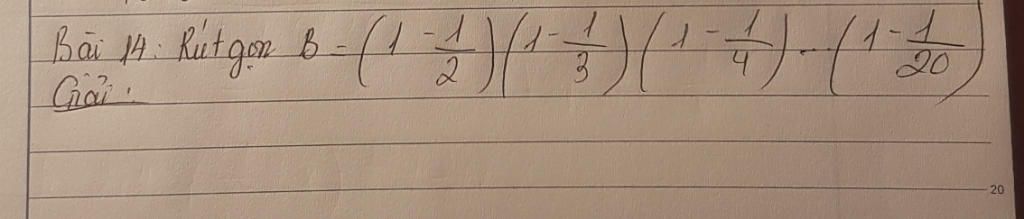 Bài 14: Rút gọn B = (1 - 1/2)(1 - 1/3)(1 - 1/4)...(1 - 1/20)
Giải:
20